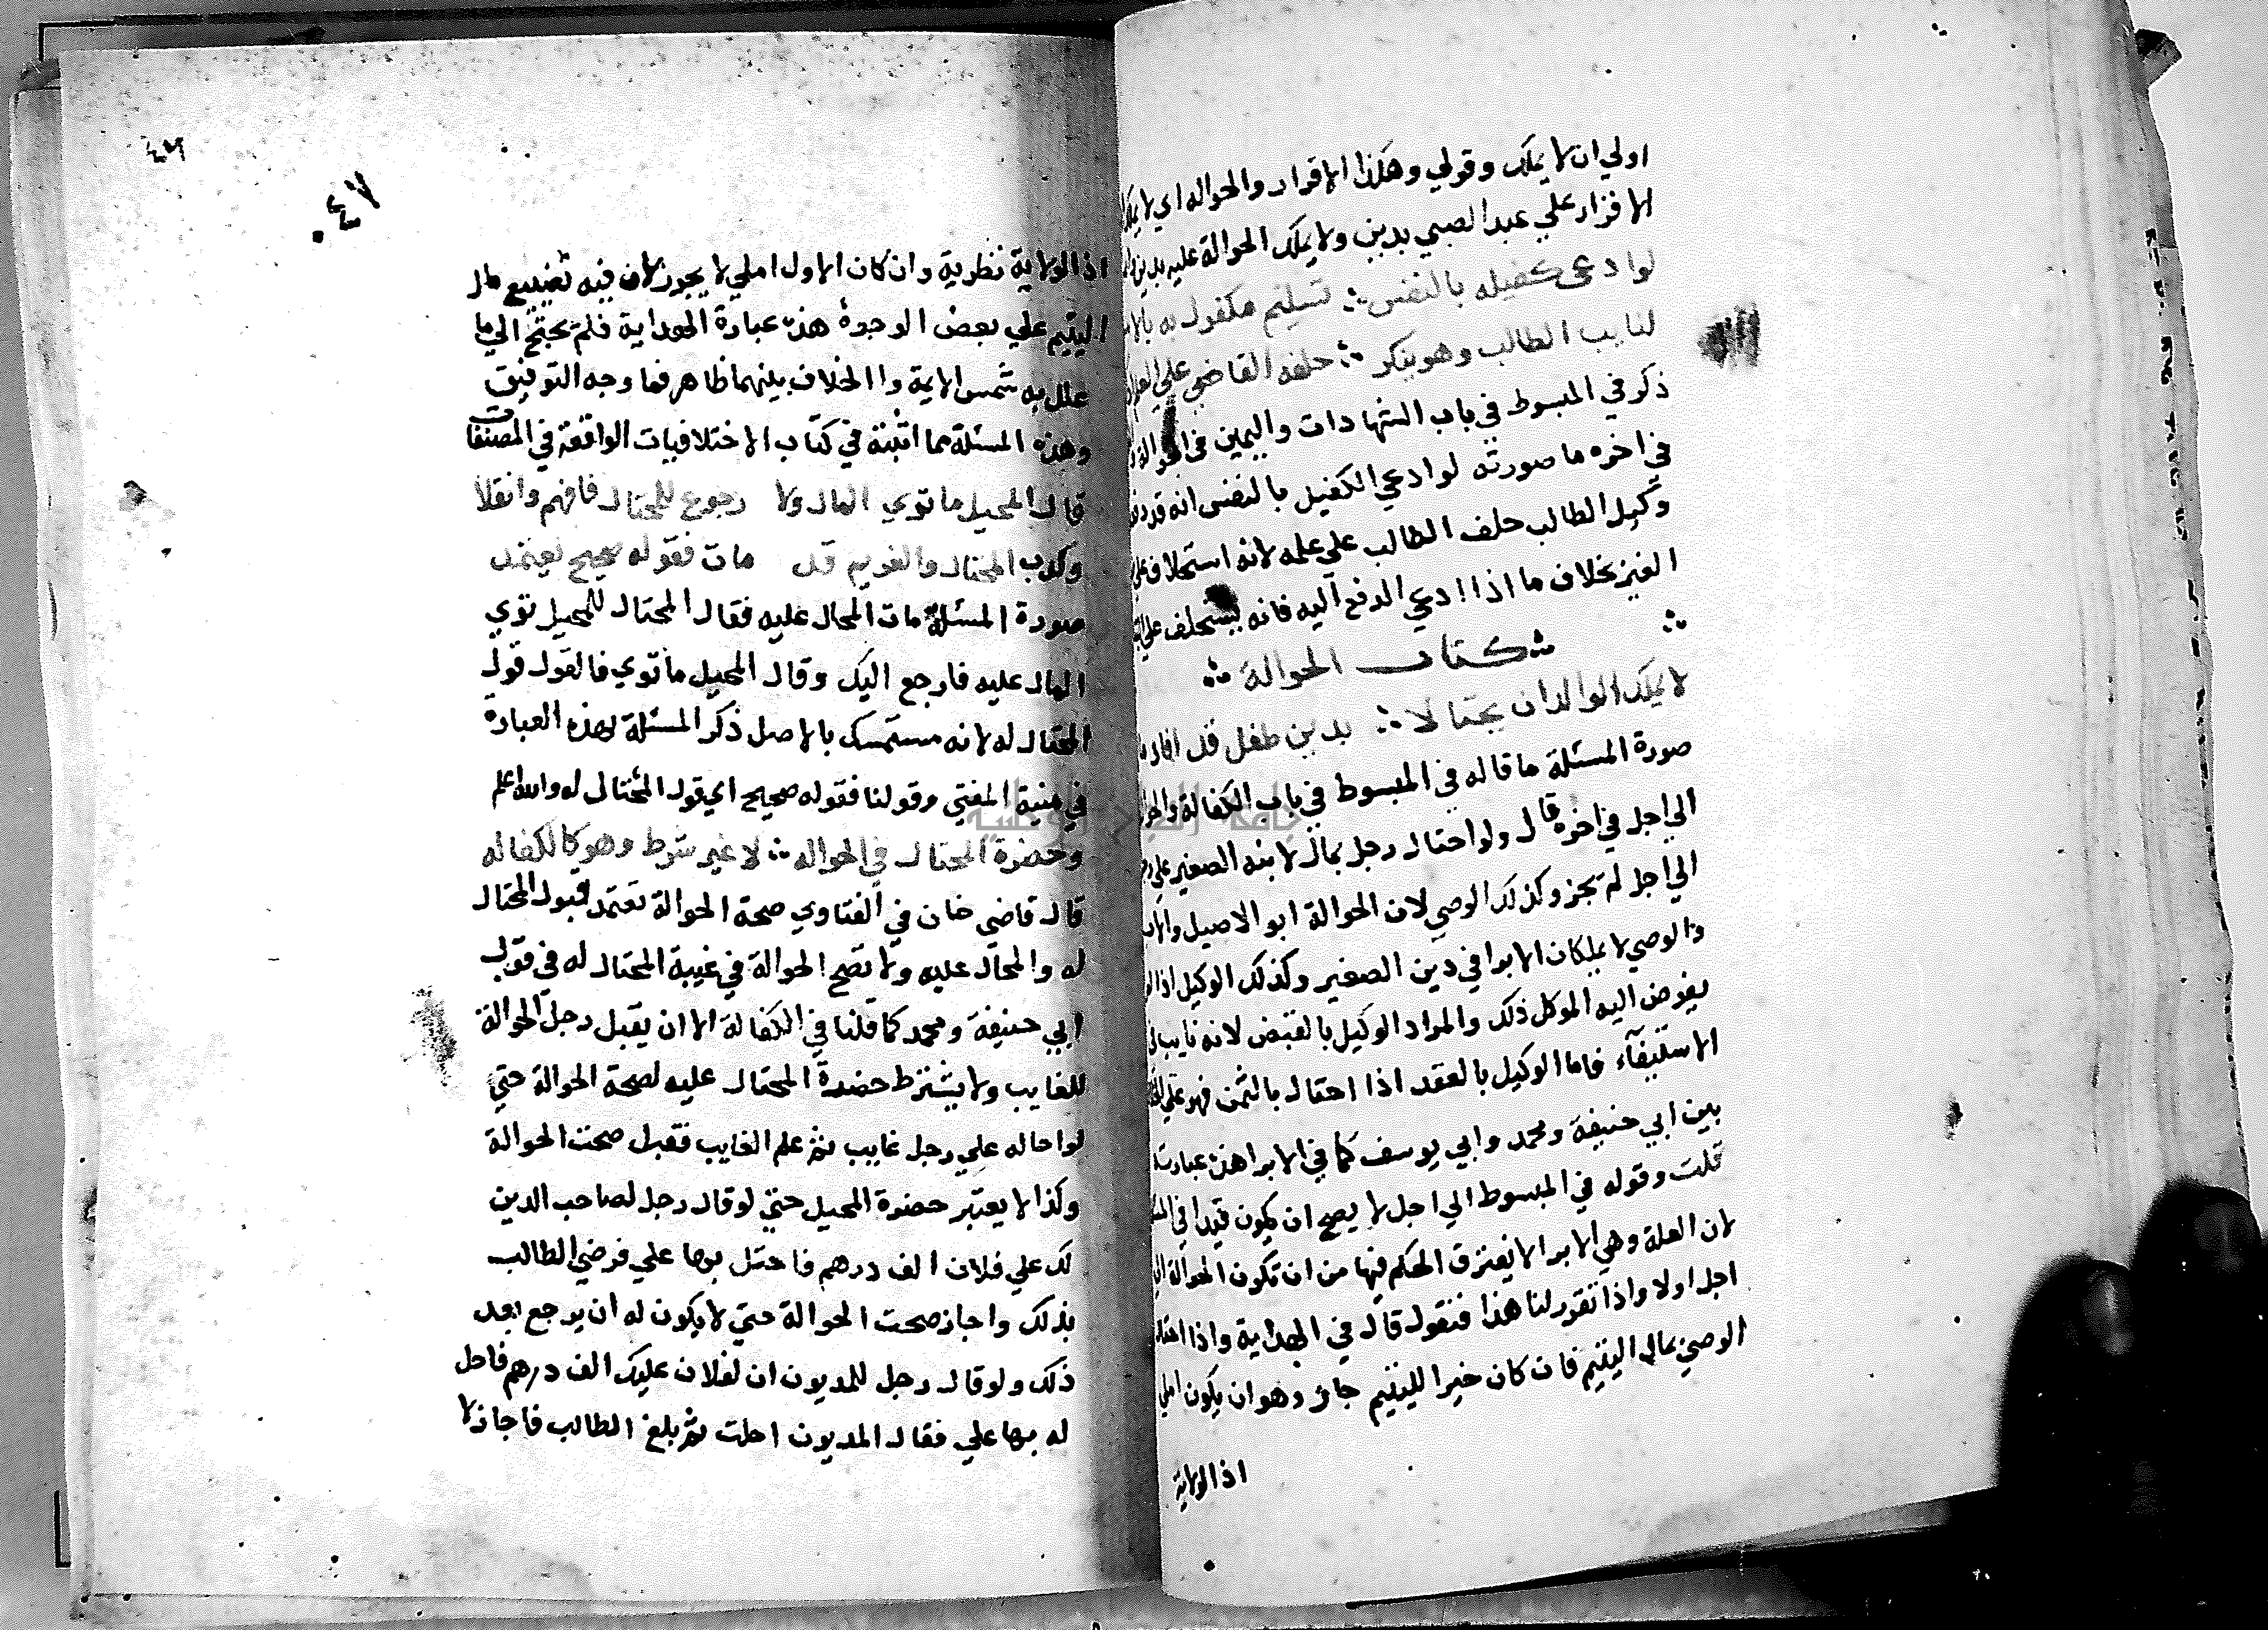 اولي ان لا يملك وقولي وهكذا الاقرار والحواله اي لا يملك
الاقرار علي عبد الصبي بدين ولا يملك الحوالة عليه بدين
لو ادعى كفيله بالنفس تسليم مكفول به
لنايب الطالب وهو ينكر حلفه القاضي علي
ذكر في المبسوط في باب الشهادات واليمين في
في اخره ما صورته لو ادعي الكفيل بالنفس انه قد
وكيل الطالب حلف الطالب علي علمه لانه استحلاف علي
الغير بخلاف ما اذا ادعي الدفع اليه فانه يستحلف علي
كتاب الحوالة
لا يملك الوالد ان يحتالا بدين طفل قد
صورة المسئلة ما قاله في المبسوط في باب الكفالة
الي اجل في اخره قال ولو احتال رجل بمال لابنه الصغير علي
الي اجل لم يجز وكذلك الوصي لان الحوالة ابو الاصيل
والوصي لا يملكان الابرا في دين الصغير وكذلك الوكيل اذا
يفوض اليه الموكل ذلك والمراد الوكيل بالقبض لانه نايب
الاستيفآء فاما الوكيل بالعقد اذا احتال بالثمن فهو علي
بين ابي حنيفة ومحمد وابي يوسف كما في الابرا هذه عبارته
قلت وقوله في المبسوط الي اجل لا يصح ان يكون قيدا في
لان العلة وهي الابرا لا يفترق الحكم فيها من ان تكون الحوالة
اجل اولا واذا تقرر لنا هذا فنقول قال في الهداية واذا احتال
الوصي بمال اليتيم فان كان خيرا لليتيم جاز وهو ان يكون املي
اذا الولاية
٤٦
٠٤٧
اذا الولاية نظرية وان كان الاول املي لا يجوز لان فيه تضييع مال
اليتيم علي بعض الوجوه هذه عبارة الهداية فلم يحتج الي ما
علل به شمس الايمة والخلاف بينهما ظاهر فما وجه التوفيق
وهذه المسئلة مما اثبته في كتاب الاختلافيات الواقعة في المصنفات
قال المحيل ما توي المال ولا رجوع للمحتال فافهم وانقلا
وكذب المحتال والغريم قد مات فقوله صحيح يعتمد
صورة المسئلة مات المحال عليه فقال المحتال للمحيل توي
المال عليه فارجع اليك وقال المحيل ما توي فالقول قول
المحتال له لانه مستمسك بالاصل ذكر المسئلة بهذه العبارة
في منية المفتي وقولنا فقوله صحيح اي يقول المحتال له والله اعلم
وحضرة المحتال في الحواله لا غير شرط وهو كالكفاله
قال قاضي خان في الفتاوي صحة الحوالة تعتمد قبول المحتال
له والمحال عليه ولا تصح الحوالة في غيبة المحتال له في قول
ابي حنيفة ومحمد كما قلنا في الكفالة الا ان يقبل رجل الحوالة
للغايب ولا يشترط حضرة المحتال عليه لصحة الحوالة حتي
لو احاله علي رجل غايب ثم علم الغايب فقبل صحت الحوالة
وكذا لا يعتبر حضرة المحيل حتي لو قال رجل لصاحب الدين
لك علي فلان الف درهم فاحتل بها علي فرضي الطالب
بذلك واجاز صحت الحوالة حتي لا يكون له ان يرجع بعد
ذلك ولو قال رجل للمديون ان لفلان عليك الف درهم فاحل
له بها علي فقال المديون احلت ثم بلغ الطالب فاجاز لا